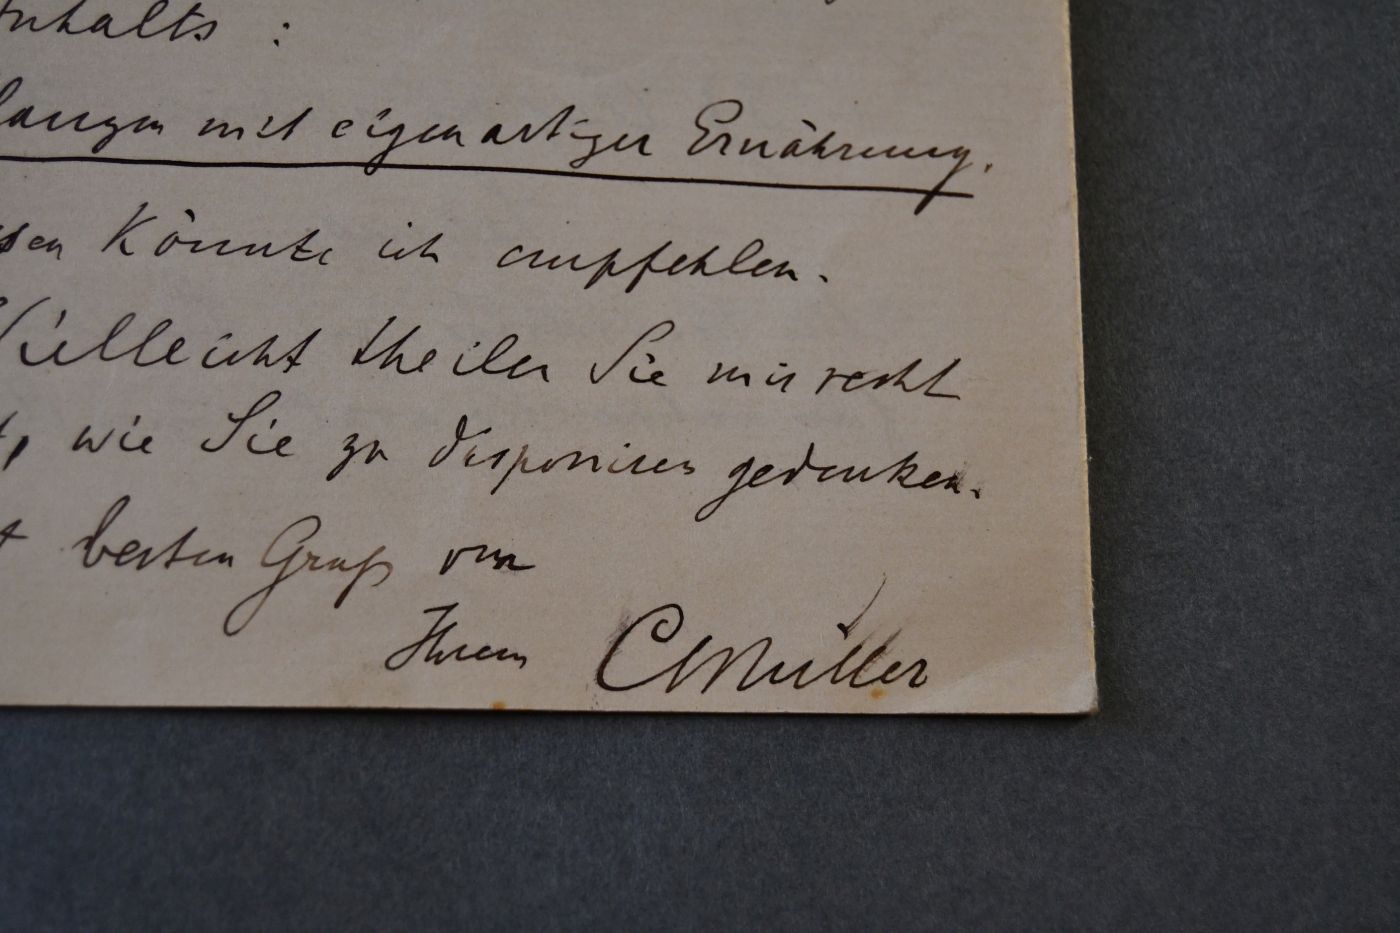 Inhalts :
langen mit eigenartiger Ernährung.
sen könnte ich empfehlen.
Vielleicht theilen Sie mir recht
t, wie Sie zu disponiren gedenken.
t besten Gruß von
Ihrem CMüller